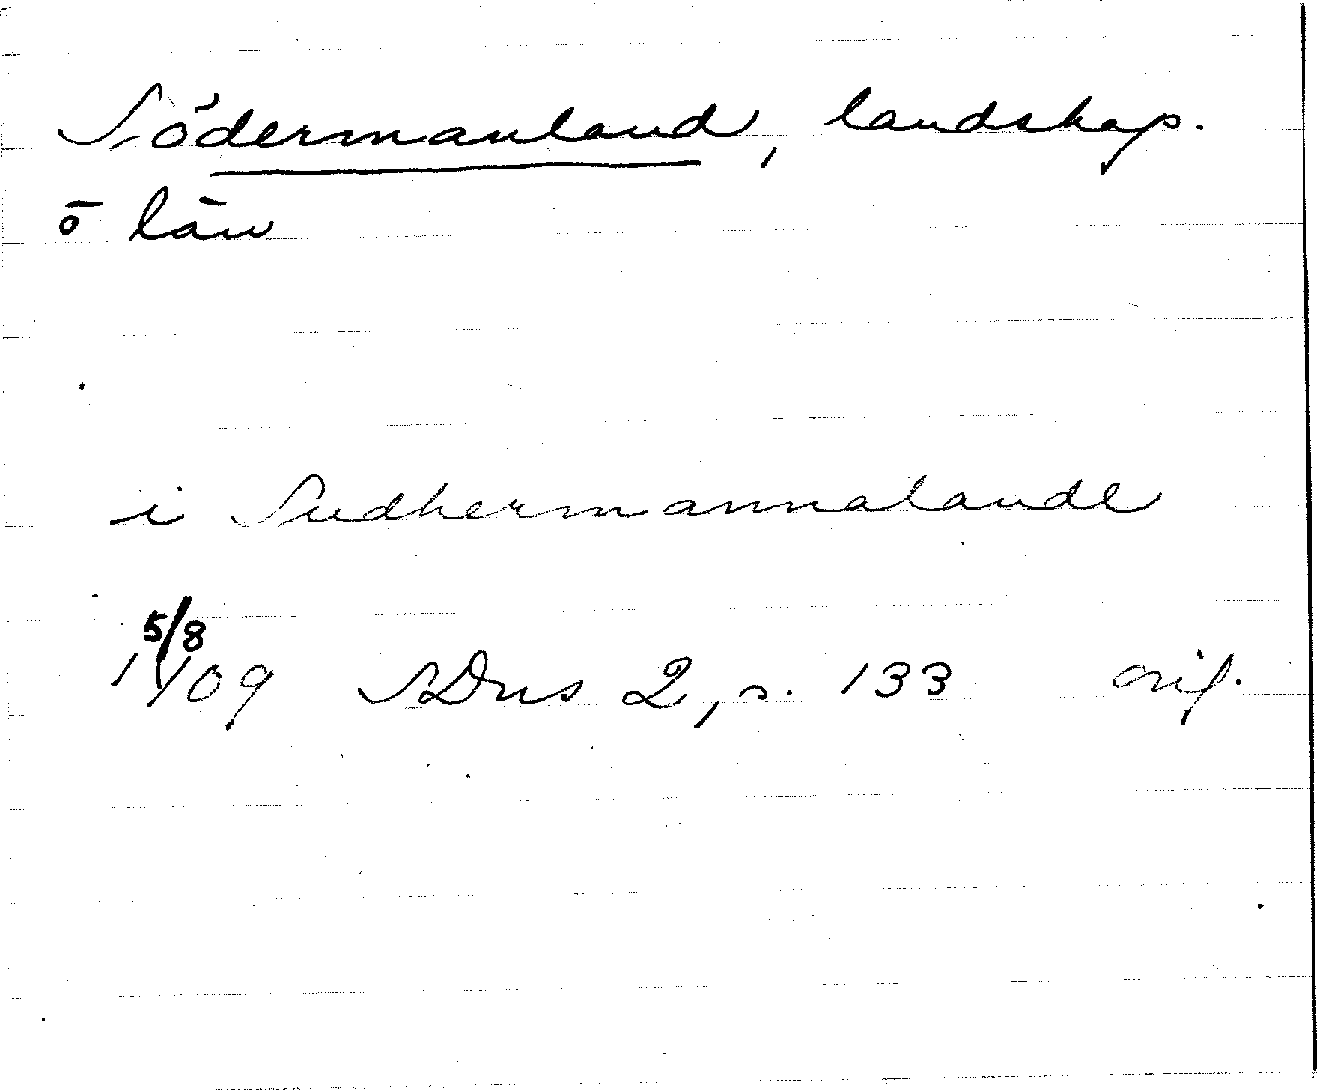 Södermanland, landskap.
o län
i Sudhermannalande
5/8
1409 SDns 2, s. 133 orig.